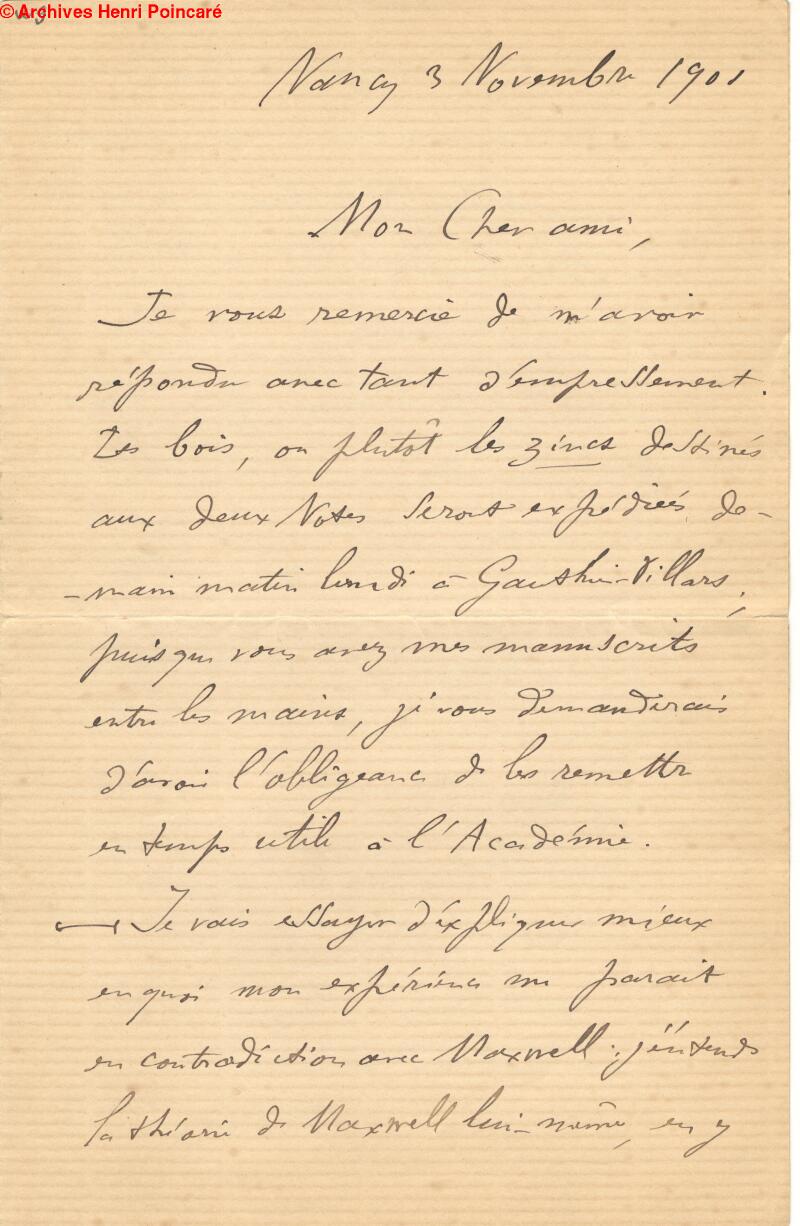 © Archives Henri Poincaré
Nancy 3 Novembre 1901
Mon Cher ami,
Je vous remercie de m'avoir
répondu avec tant d'empressement.
Les bois, ou plutôt les zincs destinés
aux deux Notes seront expédiés de-
-main matin lundi à Gauthier-Villars ;
puisque vous avez mes manuscrits
entre les mains, je vous demanderais
d'avoir l'obligeance de les remettre
en temps utile à l'Académie.
— Je vais essayer d'expliquer mieux
en quoi mon expérience me parait
en contradiction avec Maxwell : j'entends
la théorie de Maxwell lui-même, en y